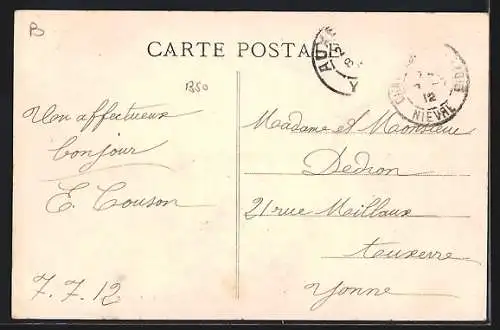 B
CARTE POSTALE
1350
AUX
8
Y
NIEVRE
12
Un affectueux
bonjour
E. Couson
7.7.12
Madame et Monsieur
Dedron
21 rue Millaux
Auxerre
Yonne